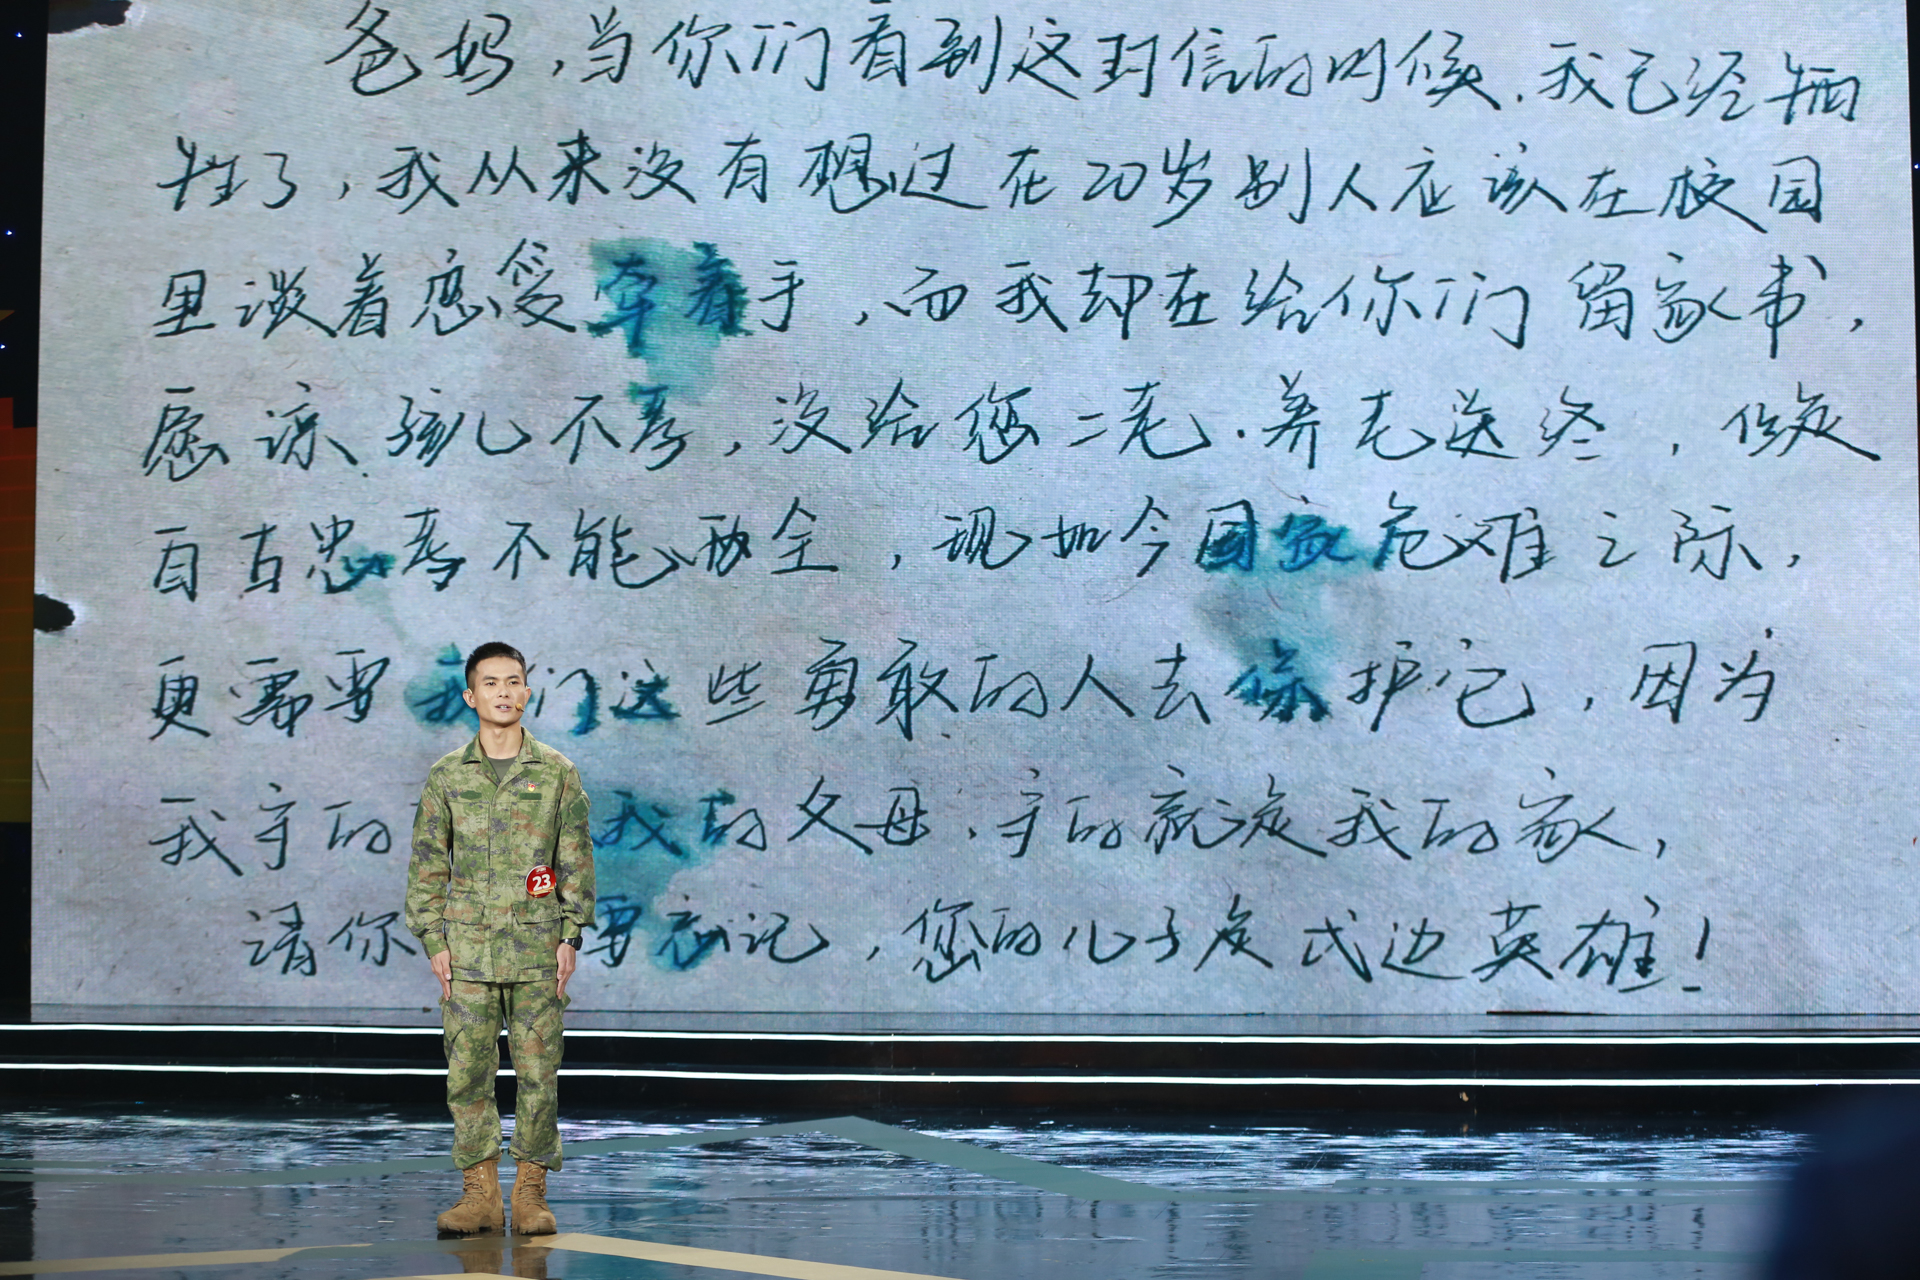 爸妈，当你们看到这封信的时候，我已经牺
牲了，我从来没有想过在20岁别人应该在校园
里谈着恋爱牵着手，而我却在给你们留家书，
愿谅孩儿不孝，没给您二老，养老送终，但是
自古忠孝不能两全，现如今国家危难之际，
更需要我们这些勇敢的人去保护它，因为
我守的 我的父母，守的就是我的家，
请你 要忘记，您的儿子是戍边英雄！
23